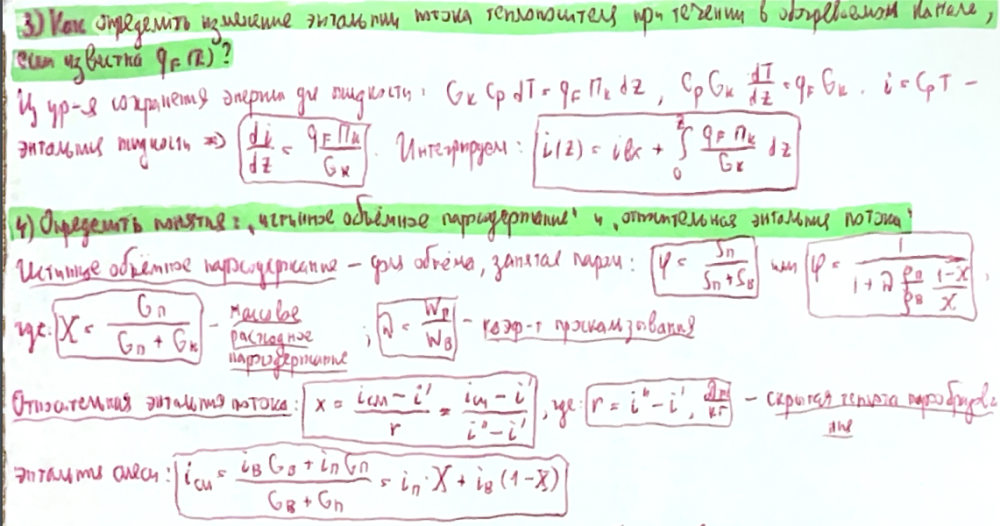 3) Как определить изменение энтальпии потока теплоносителя при течении в обогреваемом канале,
если известна q_F(z)?
Из ур-я сохранения энергии для жидкости: G_к C_p dT = q_F П_к dz, C_p G_к dT/dz = q_F G_к. i = C_p T –
энтальпия жидкости => di/dz = q_F П_к / G_к. Интегрируем: i(z) = i_вх + ∫_0^z (q_F П_к / G_к) dz
4) Определить понятия: „истинное объёмное паросодержание" и „относительная энтальпия потока"
Истинное объёмное паросодержание – доля объёма, занятая паром: φ = S_п / (S_п + S_в) или φ = 1 / (1 + λ (ρ_п/ρ_в) (1-X)/X),
где: X = G_п / (G_п + G_к) – массовое расходное паросодержание; λ = W_п / W_в – коэф-т проскальзывания
Относительная энтальпия потока: x = (i_см – i') / r = (i_см – i') / (i'' – i'), где: r = i'' – i', Дж/кг – скрытая теплота парообразования
энтальпия смеси: i_см = (i_в G_в + i_п G_п) / (G_в + G_п) = i_п · X + i_в (1 – X)